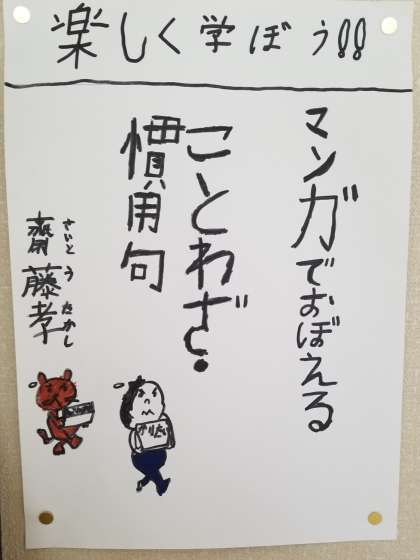 楽しく学ぼう!!
マンガでおぼえる
ことわざ・
慣用句
さいとうたかし
齋藤孝